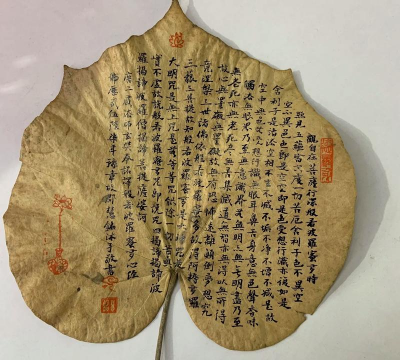 觀自在菩薩行深般若波羅蜜多時
照見五蘊皆空度一切苦厄舍利子色不異空
空不異色色即是空空即是色受想行識亦復如是
舍利子是諸法空相不生不滅不垢不淨不增不減是故
空中無色無受想行識無眼耳鼻舌身意無色聲香味
觸法無眼界乃至無意識界無無明亦無無明盡乃至
無老死亦無老死盡無苦集滅道無智亦無得以無所得
故心無罣礙無罣礙故無有恐怖遠離顛倒夢想究
竟涅槃三世諸佛依般若波羅蜜多故得阿耨多羅
三藐三菩提故知般若波羅蜜多是大神咒是
大明咒是無上咒是無等等咒能除一切苦真
實不虛故說般若波羅蜜多咒即說咒曰揭諦揭諦波
羅揭諦波羅僧揭諦菩提薩婆訶
唐三藏法師玄奘奉詔譯般若波羅蜜多心經
敬書